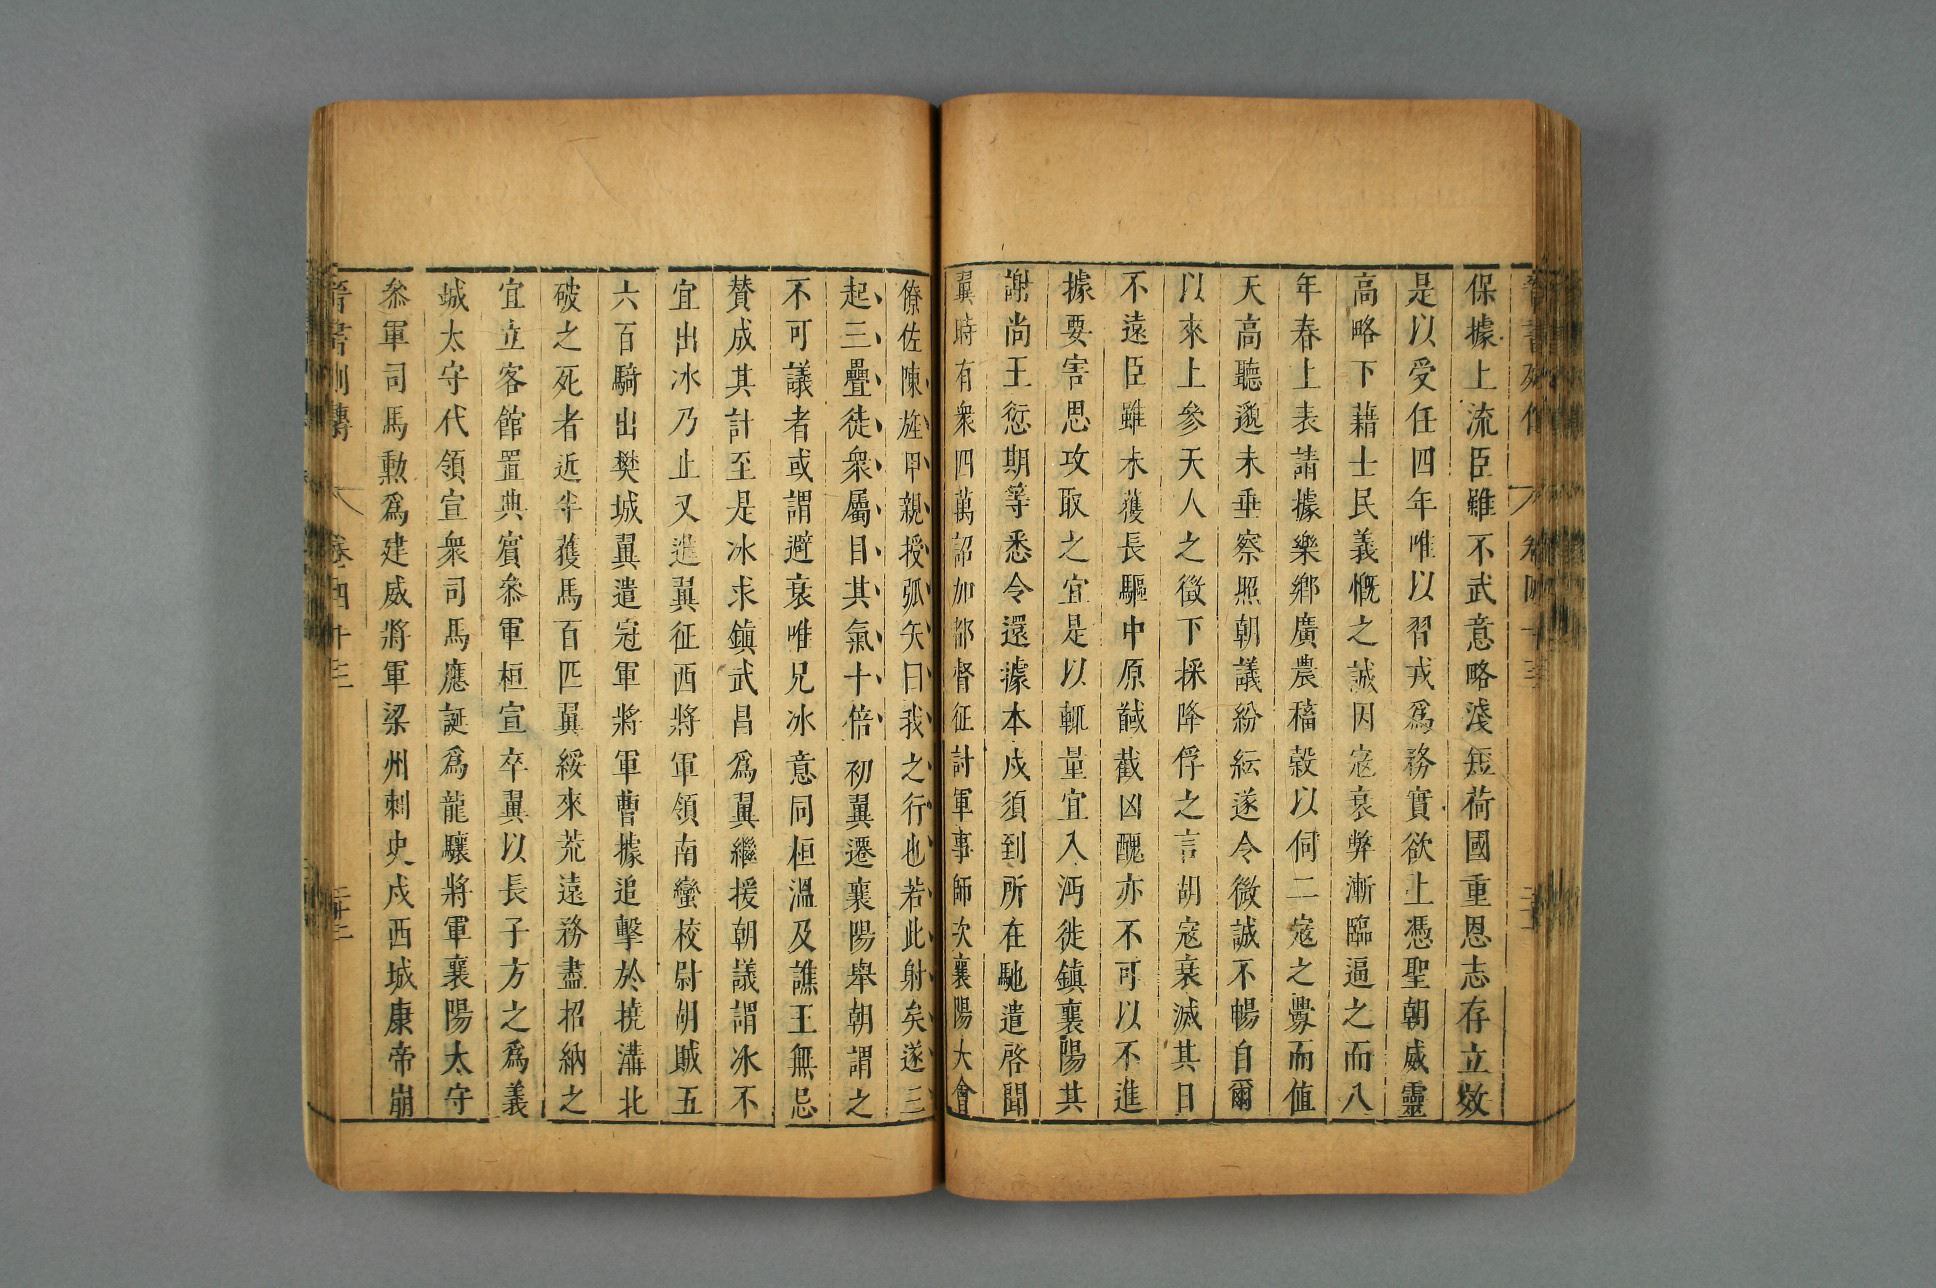 保據上流臣雖不武意略淺短荷國重恩志存立效
是以受任四年唯以習戎爲務實欲上憑聖朝威靈
高略下藉士民義慨之誠因寇衰弊漸臨逼之而八
年春上表請據樂鄉廣農穡穀以伺二寇之釁而值
天高聽邈未垂察照朝議紛紜遂令微誠不暢自爾
以來上參天人之徵下採降俘之言胡寇衰滅其日
不遠臣雖未獲長驅中原馘截凶醜亦不可以不進
據要害思攻取之宜是以輒量宜入沔徙鎮襄陽其
謝尚王愆期等悉令還據本戍須到所在馳遣啓聞
翼時有衆四萬詔加都督征討軍事師次襄陽大會
僚佐陳旌甲親授弧矢曰我之行也若此射矣遂三
起三疊徒衆屬目其氣十倍初翼遷襄陽舉朝謂之
不可議者或謂避衰唯兄冰意同桓溫及譙王無忌
賛成其計至是冰求鎮武昌爲翼繼援朝議謂冰不
宜出冰乃止又進翼征西將軍領南蠻校尉胡賊五
六百騎出樊城翼遣冠軍將軍曹據追擊於撓溝北
破之死者近半獲馬百匹翼綏來荒遠務盡招納之
宜立客館置典賓叅軍桓宣卒翼以長子方之爲義
城太守代領宣衆司馬應誕爲龍驤將軍襄陽太守
叅軍司馬勲爲建威將軍梁州刺史戍西城康帝崩
晉書列傳 卷四十三